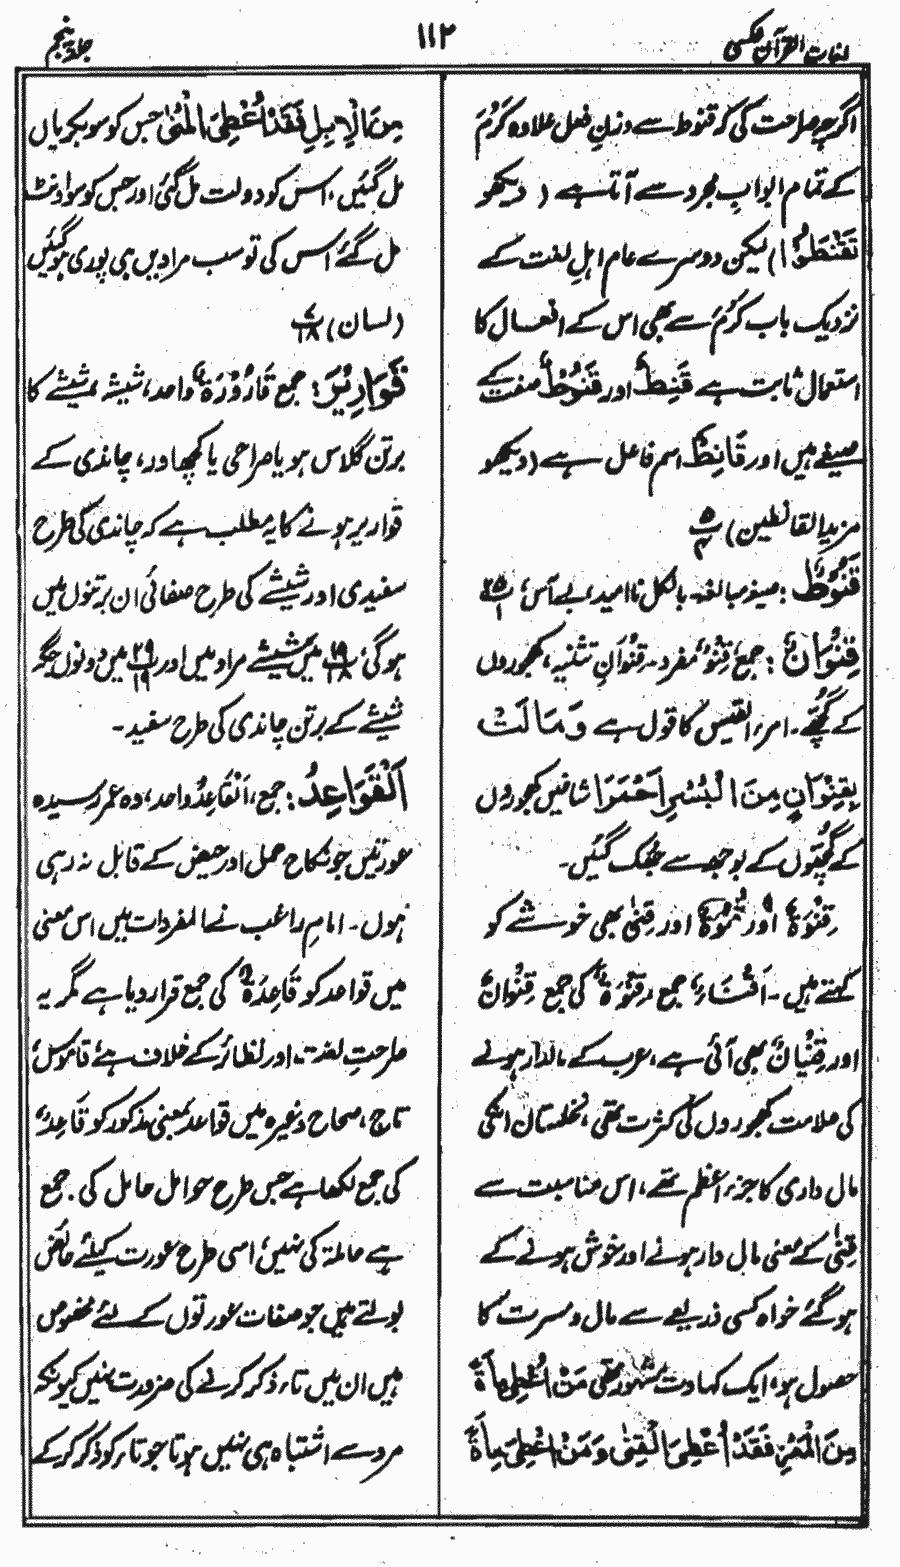 لغات القرآن عکسی
۱۱۲
جلد پنجم
اگرچہ صراحت کی کہ قنوط سے وزنِ فعل علاوہ کَرُمَ
کے تمام ابوابِ مجرد سے آتا ہے ( دیکھو
تَقْنَطُوْا ) لیکن دوسرے عام اہلِ لغت کے
نزدیک باب کَرُمَ سے بھی اس کے افعال کا
استعمال ثابت ہے قَنِطٌ اور قَنُوْطٌ صفت کے
صیغے ہیں اور قَانِطٌ اسم فاعل ہے (دیکھو
مزید القانطین)
قَنُوْطٌ: صیغہ مبالغہ۔ بالکل ناامید، بے آس،
قِنْوَانٌ: جمع، قِنْوٌ مفرد۔ قِنْوَانِ تثنیہ، کھجوروں
کے گُچھّے۔ امرء القیس کا قول ہے وَمَالَتْ
بِقِنْوَانٍ مِنَ الْبُسْرِ اَحْمَرَا شاخیں کھجوروں
کے گُچھّوں کے بوجھ سے جھک گئیں۔
قِنْوَةٌ اور قُنْوَةٌ اور قِنیٰ بھی خوشے کو
کہتے ہیں۔ اَقْنَاءٌ جمع، قِنْوَةٌ کی جمع قِنْوَانٌ
اور قِنْیَانٌ بھی آئی ہے، عرب کے مالدار ہونے
کی علامت کھجوروں کی کثرت تھی، نخلستان انکی
مال داری کا جزء اعظم تھے، اس مناسبت سے
قِنیٰ کے معنی مال دار ہونے اور خوش ہونے کے
ہوگئے خواہ کسی ذریعے سے مال و مسرت کا
حصول ہو، ایک کہاوت مشہور تھی مَنْ اُعْطِیَ مِأَةً
مِنَ الْمَعْزِ فَقَدْ اُعْطِیَ الْقِنیٰ وَمَنْ اُعْطِیَ مِأَةً
مِنَ الْاِبِلِ فَقَدْ اُعْطِیَ الْمُنیٰ جس کو سو بکریاں
مل گئیں، اس کو دولت مل گئی اور جس کو سو اونٹ
مل گئے اس کی تو سب مرادیں ہی پوری ہوگئیں
(لسان)
قَوَارِیْرَ: جمع قَارُوْرَةٌ واحد، شیشہ، شیشے کا
برتن گلاس ہو یا صراحی یا کچھ اور، چاندی کے
قواریر ہونے کا یہ مطلب ہے کہ چاندی کی طرح
سفیدی اور شیشے کی طرح صفائی ان برتنوں میں
ہوگی، ۱۹ ۱۸ میں شیشے مراد ہیں اور ۲۹ ۱۹ میں دونوں جگہ
شیشے کے برتن چاندی کی طرح سفید۔
اَلْقَوَاعِدُ: جمع، اَلْقَاعِدُ واحد، وہ عمر رسیدہ
عورتیں جو نکاح حمل اور حیض کے قابل نہ رہی
ہوں۔ امام راغب نے المفردات میں اس معنی
میں قواعد کو قَاعِدَةٌ کی جمع قرار دیا ہے مگر یہ
صراحتِ لغت اور نظائر کے خلاف ہے، قاموس،
تاج، صحاح وغیرہ میں قواعد بمعنی مذکور کو قَاعِدٌ
کی جمع لکھا ہے جس طرح حوامل حامل کی جمع
ہے حاملۃ کی نہیں، اسی طرح عورت کیلئے حائض
بولتے ہیں جو صفات عورتوں کے لئے مخصوص
ہیں ان میں تاء ذکر کرنے کی ضرورت نہیں کیونکہ
مرد سے اشتباہ ہی نہیں ہوتا جو تاء کو ذکر کرکے